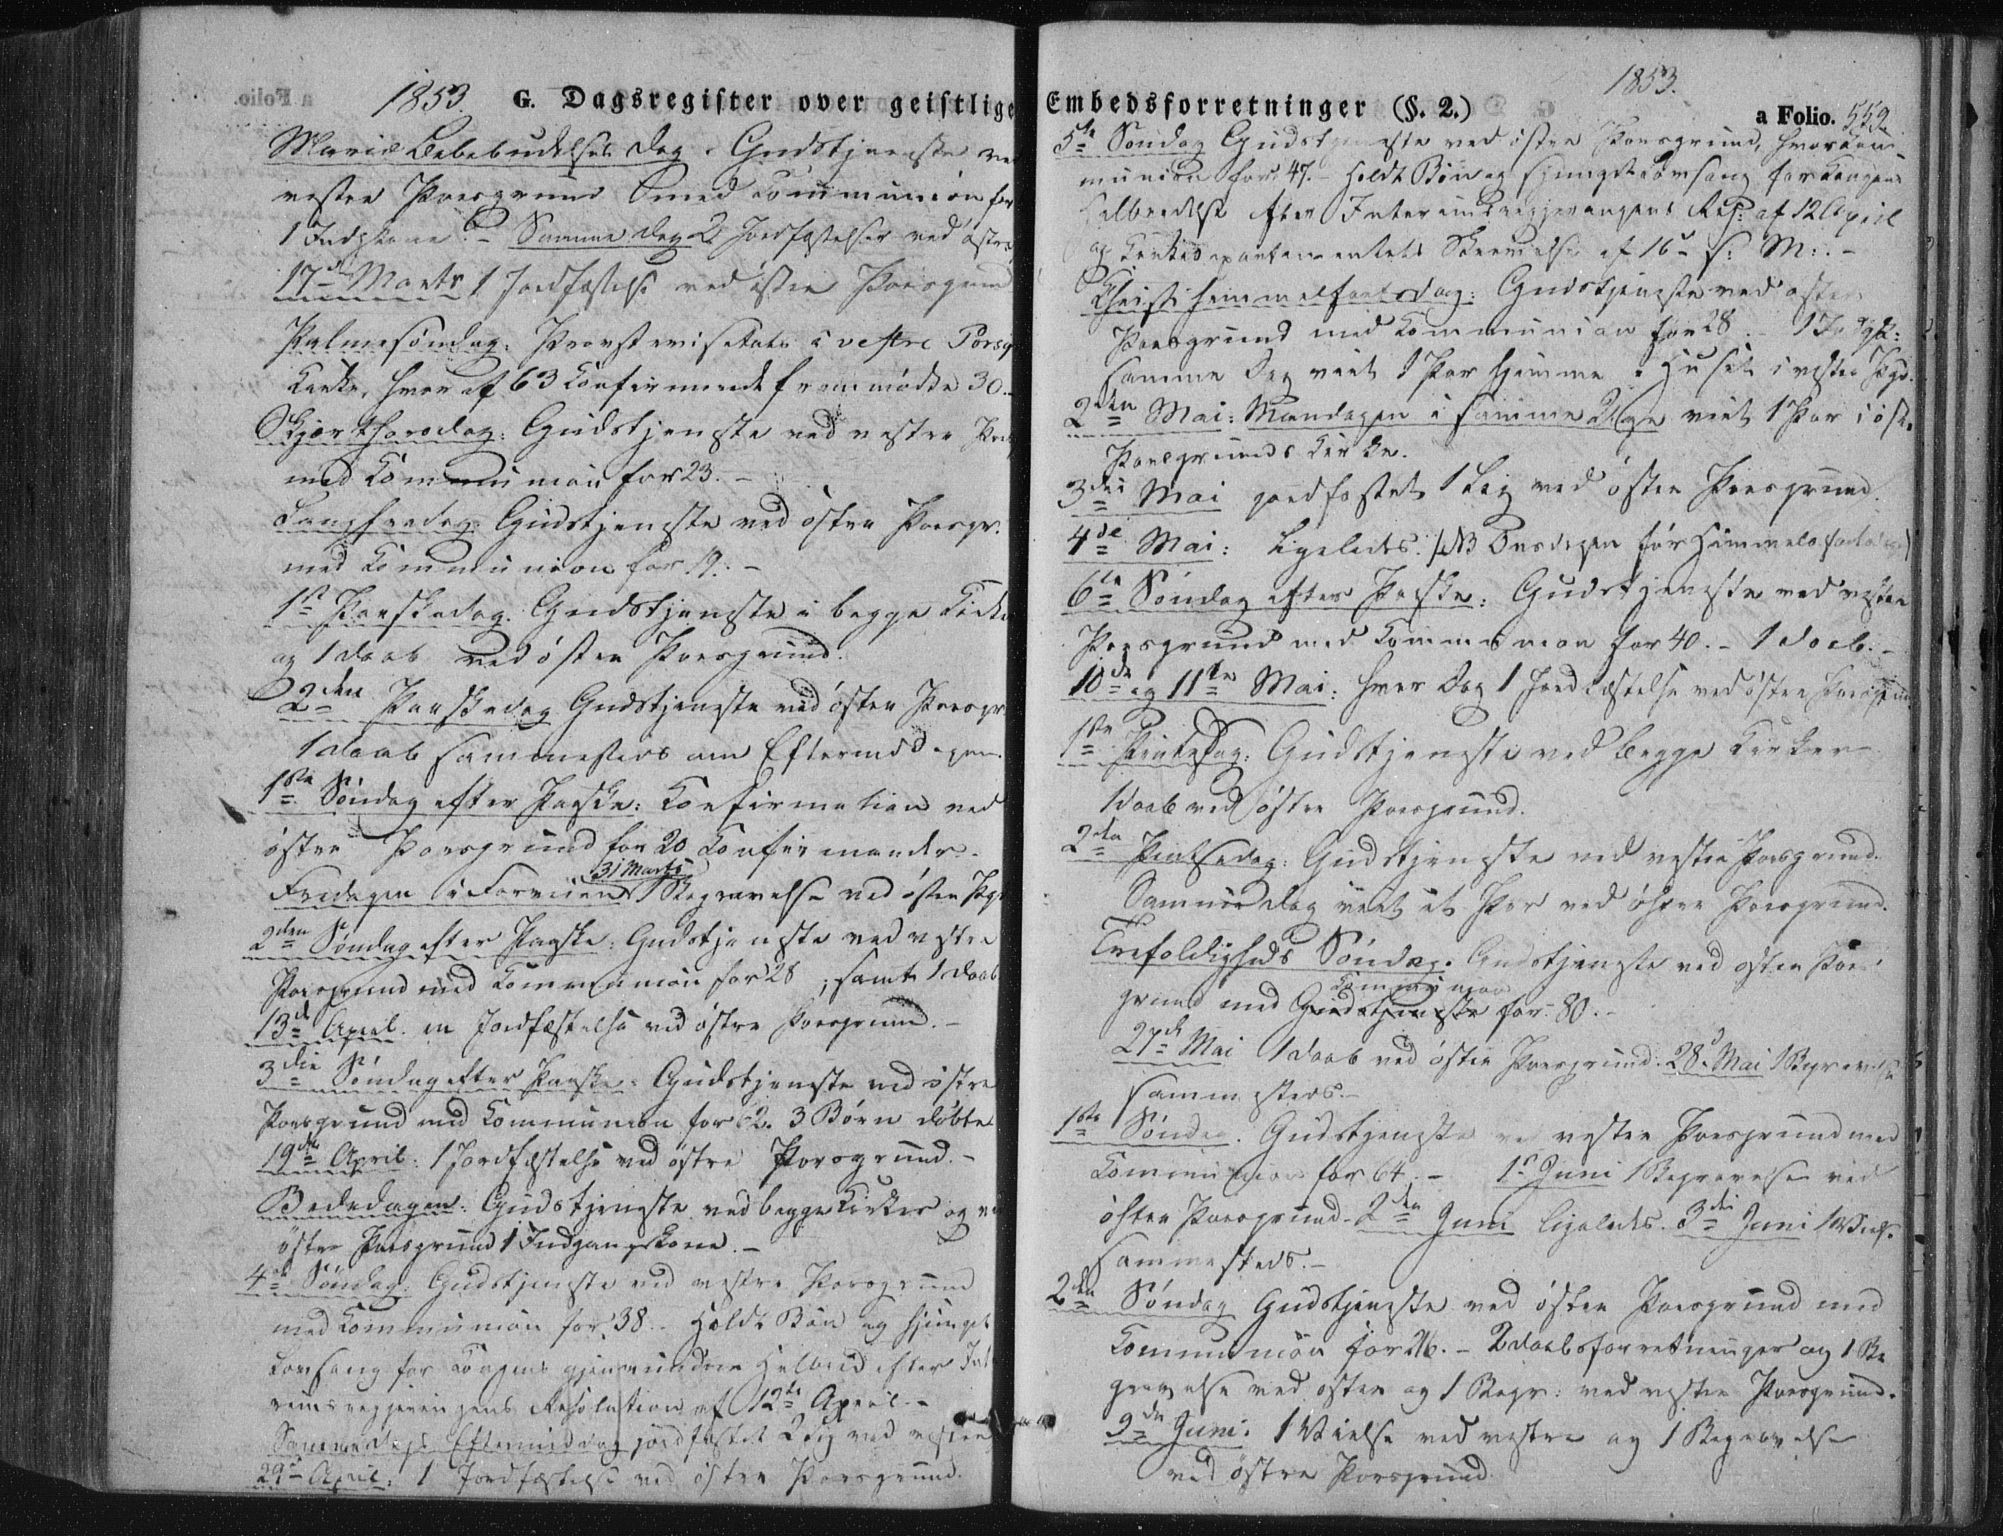 1853. G. Dagsregister over geistlige
Mariæ Bebudelses Dag. Gudstjeneste
vestre Porsgrund med Communion for
1 Indgkone. – Samme Dag 2 Jordfæstelser ved østre
17de Marts 1 Jordfæstelse ved østre Porsgrund
Palmesøndag: Provstevisitats i vestre Porsgr
Kirke, hvor af 63 Confirmerede fremmødte 30.
Skjærthorsdag: Gudstjeneste ved vestre
med Communion for 23. –
Langfredag. Gudstjeneste ved østre Porsgr.
med Communion for 19. –
1ste Paaskedag. Gudstjeneste i begge Kirker
og 1 Daab ved østre Porsgrund.
2den Paaskedag Gudstjeneste ved østre Porsgr
1 Daab sammesteds om Eftermiddagen.
1ste Søndag efter Paaske: Confirmation ved
østre Porsgrund for 20 Confirmander.
31 Marts
Fredagen i Forveien 1 Begravelse ved østre Psgr
2den Søndag efter Paaske: Gudstjeneste ved vestre
Porsgrund med Communion for 28, samt 1 Daab
13de April. en Jordfæstelse ved østre Porsgrund. –
3die Søndag efter Paaske: Gudstjeneste ved østre
Porsgrund med Communion for 62. 3 Børn døbte
19de April: 1 Jordfæstelse ved østre Porsgrund. –
Bededagen: Gudstjeneste ved begge Kirker og
østre Porsgrund 1 Indgangskone. –
4de Søndag: Gudstjeneste ved vestre Porsgrund
med Communion for 38. – Holdt Bøn og sjunget
Lovsang for Kongens gjenvundne Helbred efter Int
rimsregjeringens Resolution af 12te April. –
Sammedags Eftermiddag jordfæstet 2 Lig ved vestre
29de April: 1 Jordfæstelse ved østre Porsgrund.
1853.
Embedsforretninger (§. 2.) a Folio. 559.
5te Søndag Gudstjeneste ved østre Porsgrund, hvor Com-
munion for 47. – Holdt Bøn og sjunget Lovsang for Kongens
Helbredelse efter Interimsregjeringens Res: af 12 April
og Kirkedepartementets Skrivelse af 16de s. M: –
Christi Himmelfartsdag: Gudstjeneste ved østre
Porsgrund med Communion for 28. – 1 Indgk:
samme Dag viet 1 Par hjemme i Huset i vestre Psgr.
2den Mai: Mandagen i samme Uge viet 1 Par i øst.
Porsgrunds Kirke.
3die Mai jordfæstet 1 Lig ved østre Porsgrund.
4de Mai: Ligeledes. (NB Onsdagen før Himmelfartsdag)
6te Søndag efter Paaske: Gudstjeneste ved vestre
Porsgrund med Communion for 40. – 1 Daab. –
10de og 11te Mai: hver Dag 1 Jordfæstelse ved østre Porsgrund.
1ste Pintsedag: Gudstjeneste ved begge Kirker
1 Daab ved østre Porsgrund.
2den Pintsedag: Gudstjeneste ved vestre Porsgrund.
Samme Dag viet et Par ved østre Porsgrund.
Trefoldigheds Søndag. Gudstjeneste ved østre Pors-
Communion
grund med Gudstjeneste for 80. –
27de Mai 1 Daab ved østre Porsgrund. 28de Mai 1 Begravelse
sammesteds. –
1ste Søndag. Gudstjeneste ved vestre Porsgrund med
Communion for 64. – 1ste Juni 1 Begravelse ved
østre Porsgrund. 2den Juni ligeledes. 3die Juni 1 Viels.
sammesteds. –
2den Søndag Gudstjeneste ved østre Porsgrund med
Communion for 26. – 2 Daabsforretninger og 1 Be
gravelse ved østre og 1 Begr: ved vestre Porsgrund.
9de Juni: 1 Vielse ved vestre og 1 Begravelse
ved østre Porsgrund.